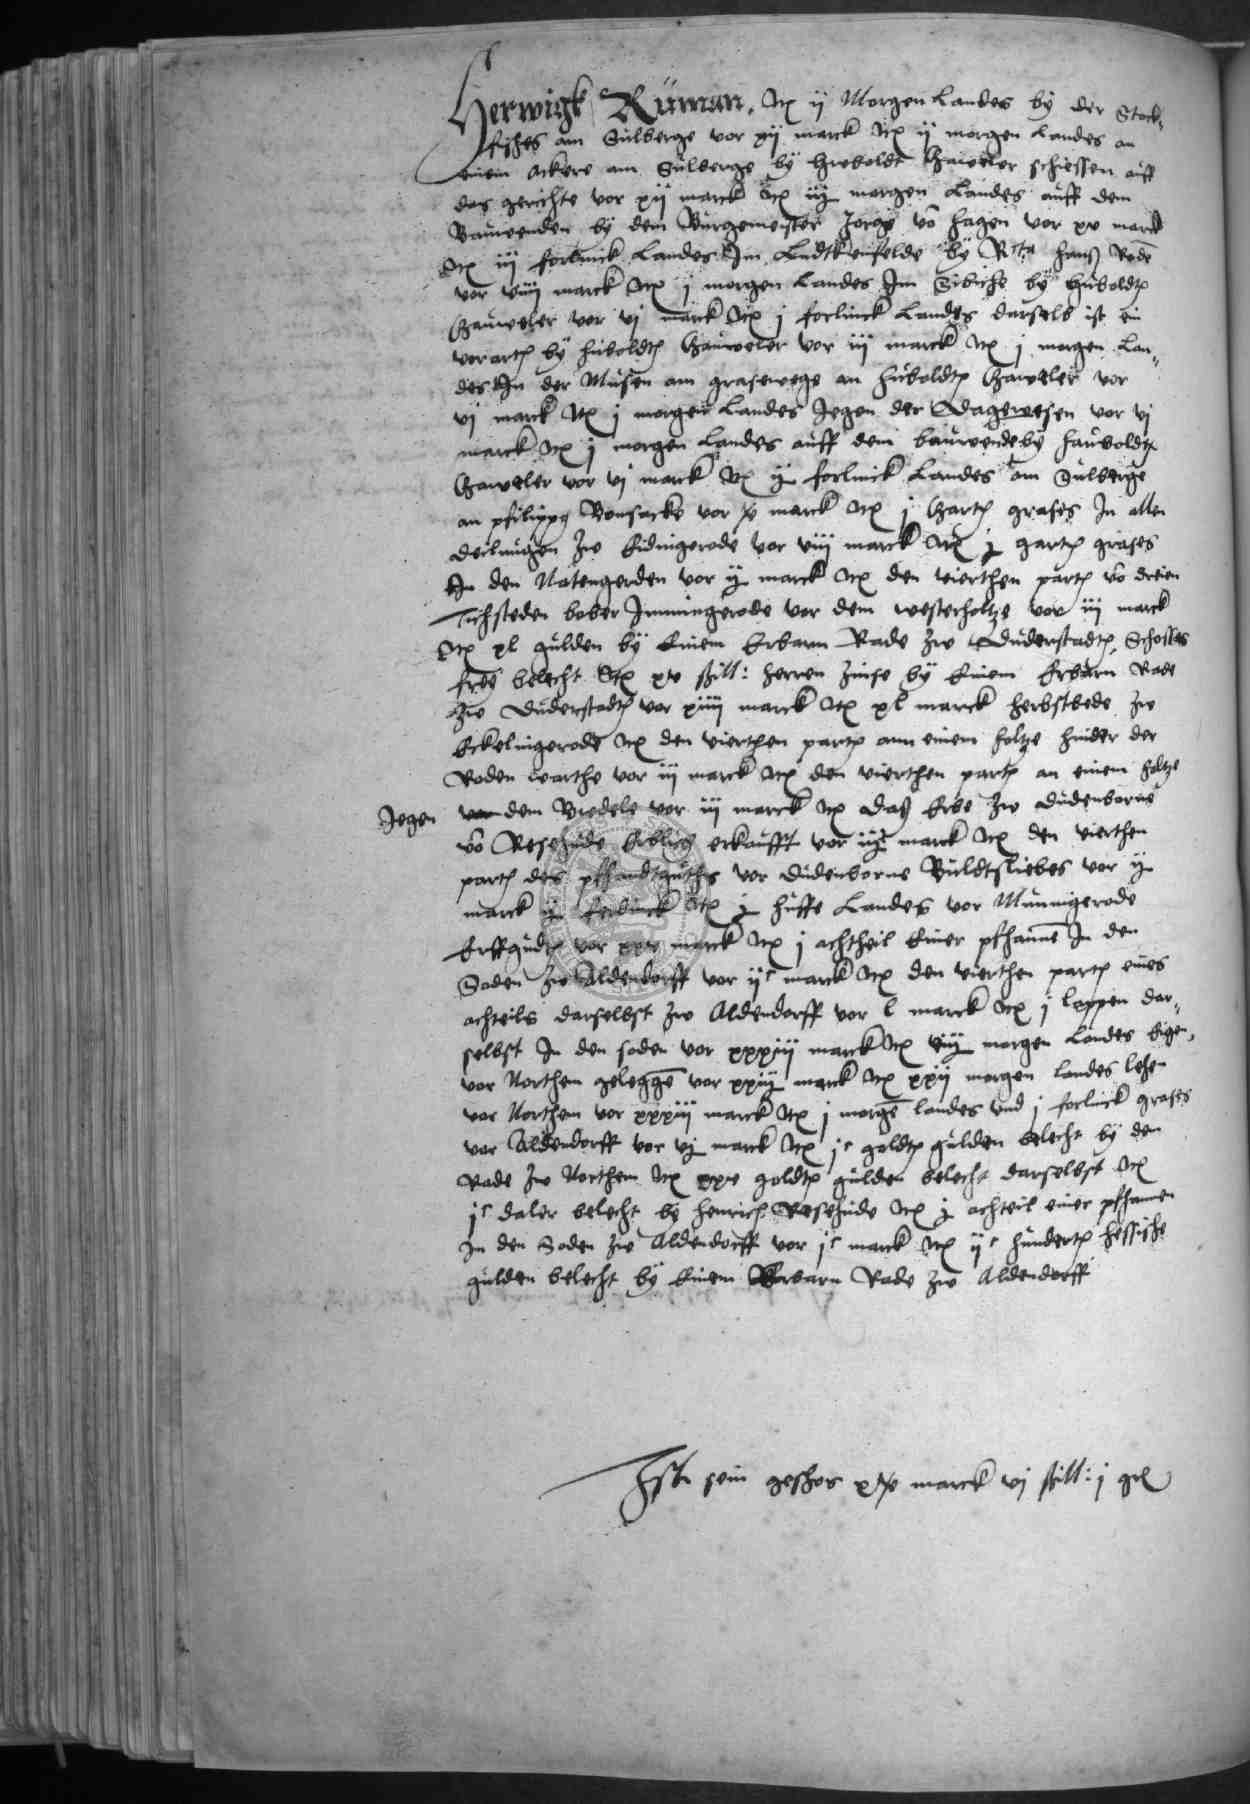 Herwigk Rüman, Itē ij Morgen Landes by der Stock-
fisches am Sulberge vor xij marck Itē ij morgen Landes an
einem Ackere am Sulberge by Huboldt Gauweler schiessen auff
das gerichte vor xij marck Itē iij morgen Landes auff dem
Bauwenden by dem Burgemeister Jorge vō Hagen vor xv marck
Itē iij forlinck Landes Im Ludtkenfelde by Hans Rode
vor viij marck Itē j morgen Landes Im by Huboldt
Gauweler vor vj marck Itē j forlinck Landes darselb ist ein
vorart by Huboldt Gauweler vor iij marck Itē j morgen Lan-
des In der Musen am grasewege an Huboldt Gauweler vor
vj marck Itē j morgen Landes Jegen der Dagewesen vor vj
marck Itē j morgen Landes auff dem bauwende by Hauboldt
Gauweler vor vj marck Itē ij forlinck Landes am Sulberge
an philippꝰ Bonsacke vor marck Itē j Gart grases In allen
deilungen zw Eidingerode vor viij marck Itē j gart grases
In den Natengerden vor ij marck Itē den vierthen part vō dreien
Tichsteden bober Immingerode vor dem westerholtze vor iij marck
Itē xl gulden by Einem Erbarn Rade zw Duderstadt, Schosses
free belecht Itē xv ßchill: herren Zinse by Einem Erbarn Rade
zw Duderstadt vor xiiij marck Itē xl marck herbstbede zw
Eckelingerode Itē den vierthen part ann einem holtze hinder der
Roden warthe vor iij marck Itē den vierthen part an einem holtze
Jegen dem Bredele vor iij marck Itē daß Erbe zw dudenborne
vō Resehude Erblich erkaufft vor marck Itē den vierthen
part des pfhandtguths vor dudenborne vor ij
marck ij ferdinck Itē j huffe Landes vor Minnigerode
Erffgudt vor xxv marck Itē j achtheil Einer pfhannē In den
Soden zw Aldendorff vor ijᶜ marck Itē den vierthen part eines
achteils darselbst zw Aldendorff vor l marck Itē j leppen dar-
selbst In den soden vor xxxiij marck Itē morgen Landes Eigen-
vor Northem geleggē vor marck Itē xxij morgen landes lehen
vor Northem vor xxxiij marck Itē j morgē landes vnd j forlinck grases
vor Aldendorff vor vj marck Itē jᶜ goldt gulden belecht by den
Rade zw Northem Itē xxv goldt gulden belecht darselbst Itē
jᶜ daler belecht by Henrich Resehude Itē j achteil einer pfhannen
In den Soden zw Aldendorff vor jᶜ marck Itē ijᶜ hundert hessische
gulden belecht by Einem Erbarn Rade zw Aldendorff
Ist sein geschos marck vj ßchill: j